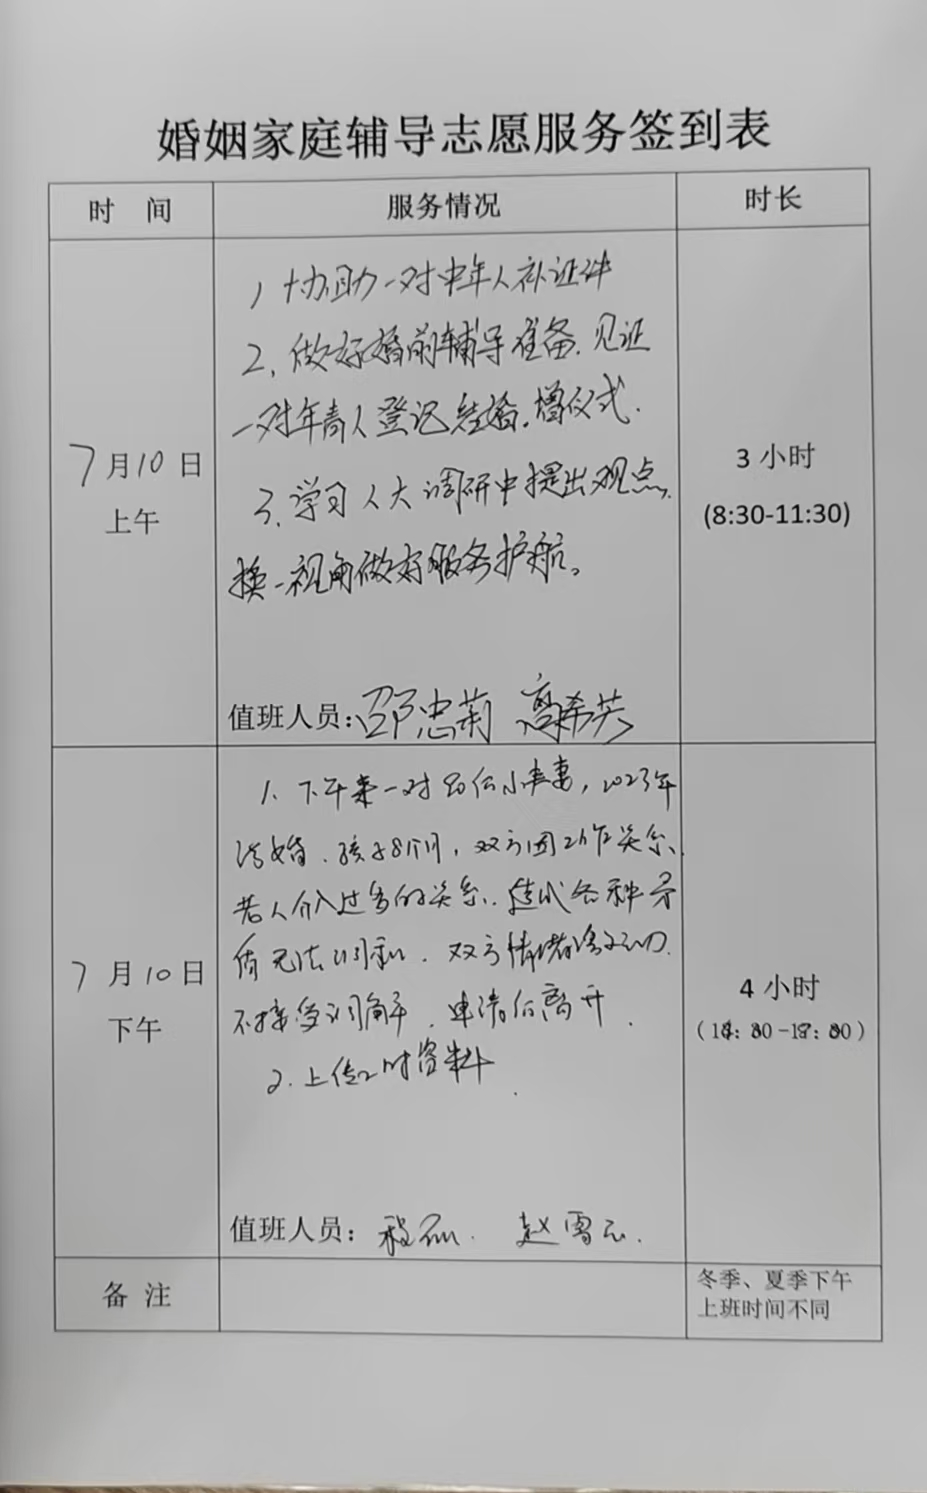 婚姻家庭辅导志愿服务签到表
时 间
服务情况
时长
7月10日
上午
1、协助一对中年人补证件
2、做好婚前辅导准备.见证
一对年青人登记结婚.增仪式.
3、学习人大调研中提出观点,
换一视角做好服务护航。
值班人员:邵忠莉 高希芙
3小时
(8:30-11:30)
7月10日
下午
1、下午来一对90后小夫妻,2023年
结婚.孩子8个月,双方因工作关系.
老人介入过多的关系.造成各种矛
盾无法调和.双方情绪激动.
不接受调解.申请后离开.
2.上传2时资料.
值班人员: 赵雪云.
4小时
备 注
冬季、夏季下午
上班时间不同